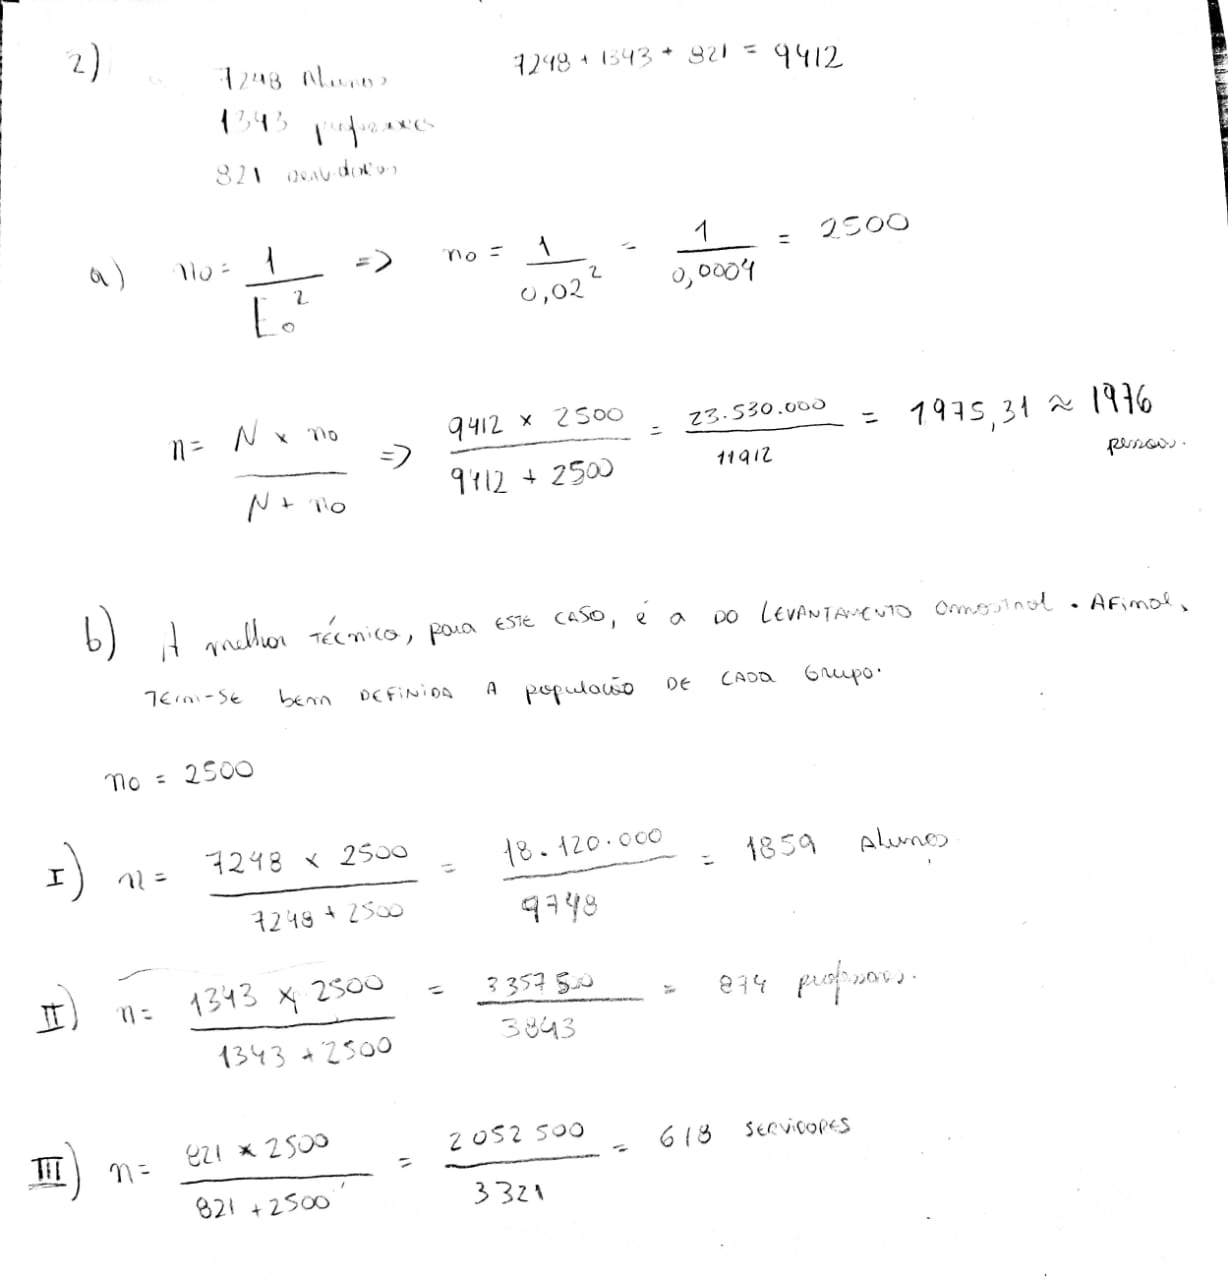 2)
7248 Alunos 7248 + 1343 + 821 = 9412
1343 professores
821 servidores
a) no = 1 / Eo² => no = 1 / 0,02² = 1 / 0,0004 = 2500
n = N x no / N + no => 9412 x 2500 / 9412 + 2500 = 23.530.000 / 11912 = 1975,31 ≈ 1976
pessoas.
b) A melhor TÉCNICA, para ESTE CASO, é a DO LEVANTAMENTO Amostral. AFinal,
TEM-SE bem DEFINIDA A população DE CADA Grupo.
no = 2500
I) n = 7248 x 2500 / 7248 + 2500 = 18.120.000 / 9748 = 1859 Alunos
II) n = 1343 x 2500 / 1343 + 2500 = 3357500 / 3843 = 874 professores.
III) n = 821 x 2500 / 821 + 2500 = 2052500 / 3321 = 618 SERVIDORES